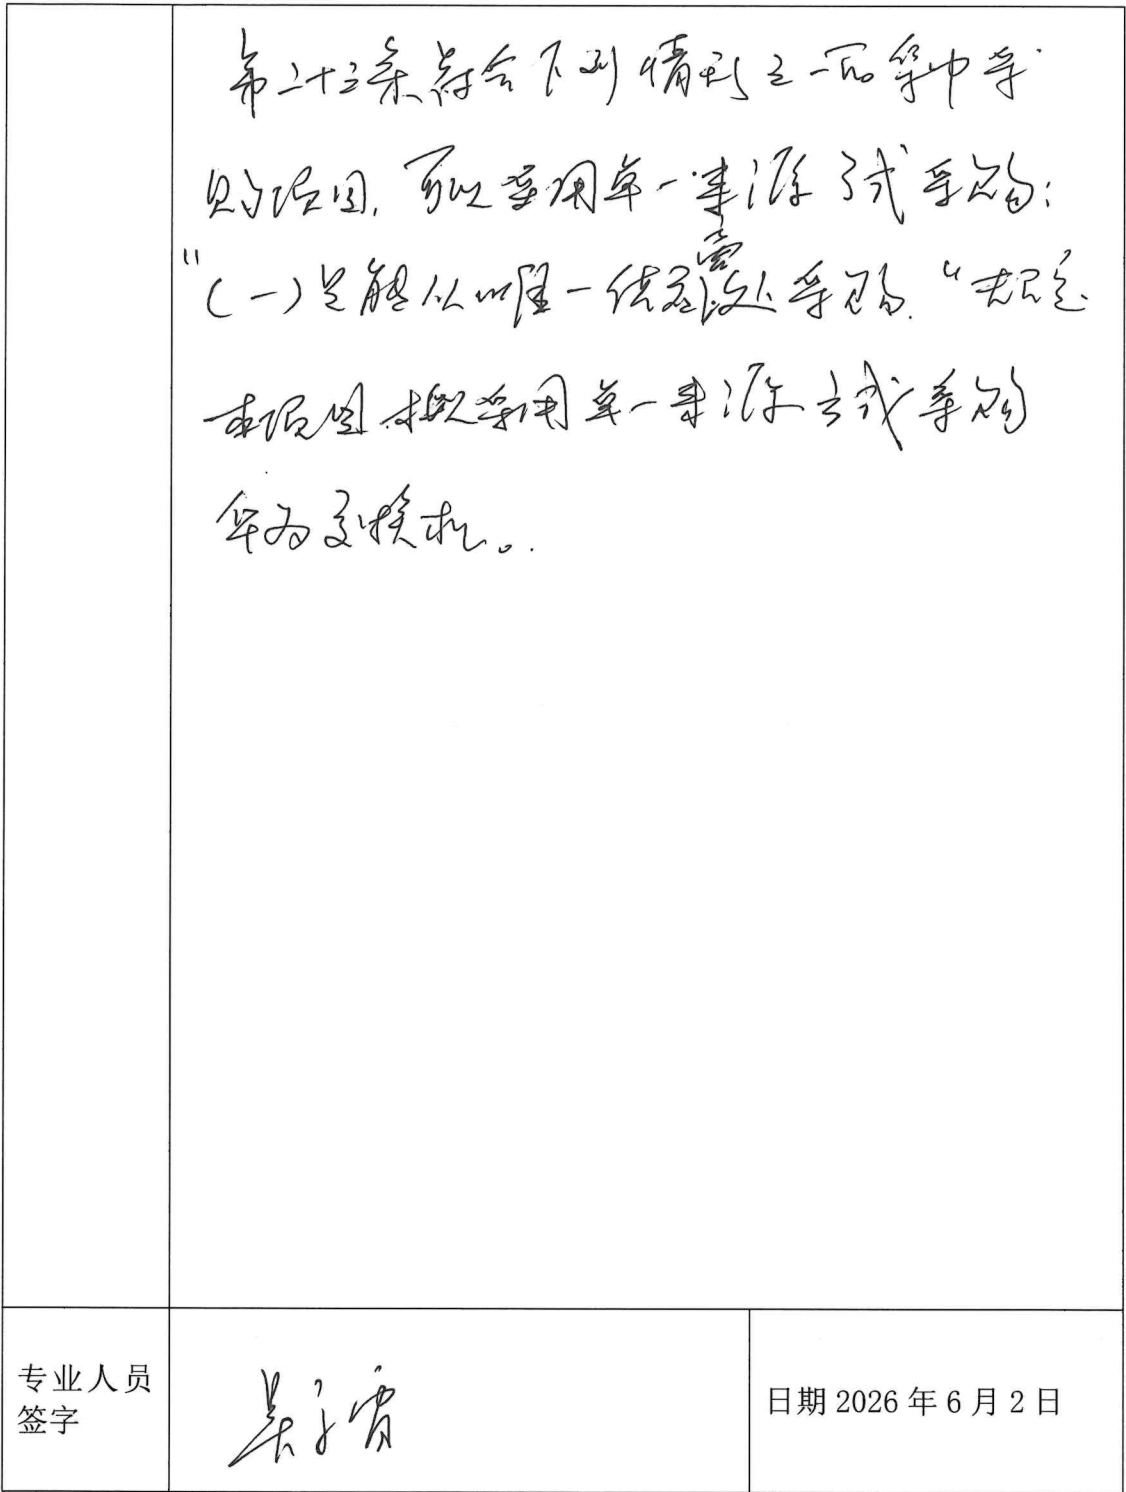 第二十三条符合下列情形之一的集中采
购项目,可以采用单一来源方式采购:
"(一)只能从唯一供应商处采购."规定
本项目拟采用单一来源方式采购
华为交换机。
专业人员
签字
日期 2026 年 6 月 2 日